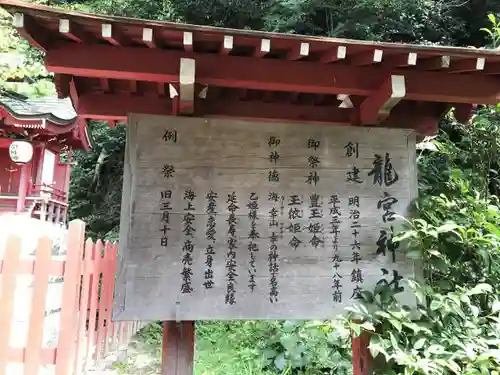 龍宮神社
創建 明治二十六年鎮座
平成三年より九十八年前
御祭神 豊玉姫命
玉依姫命
御神徳 海幸山幸の神話で名高い
乙姫様を祀っています
延命長寿家内安全良縁
安産、育児、立身出世
海上安全、商売繁盛
例祭 旧三月十日